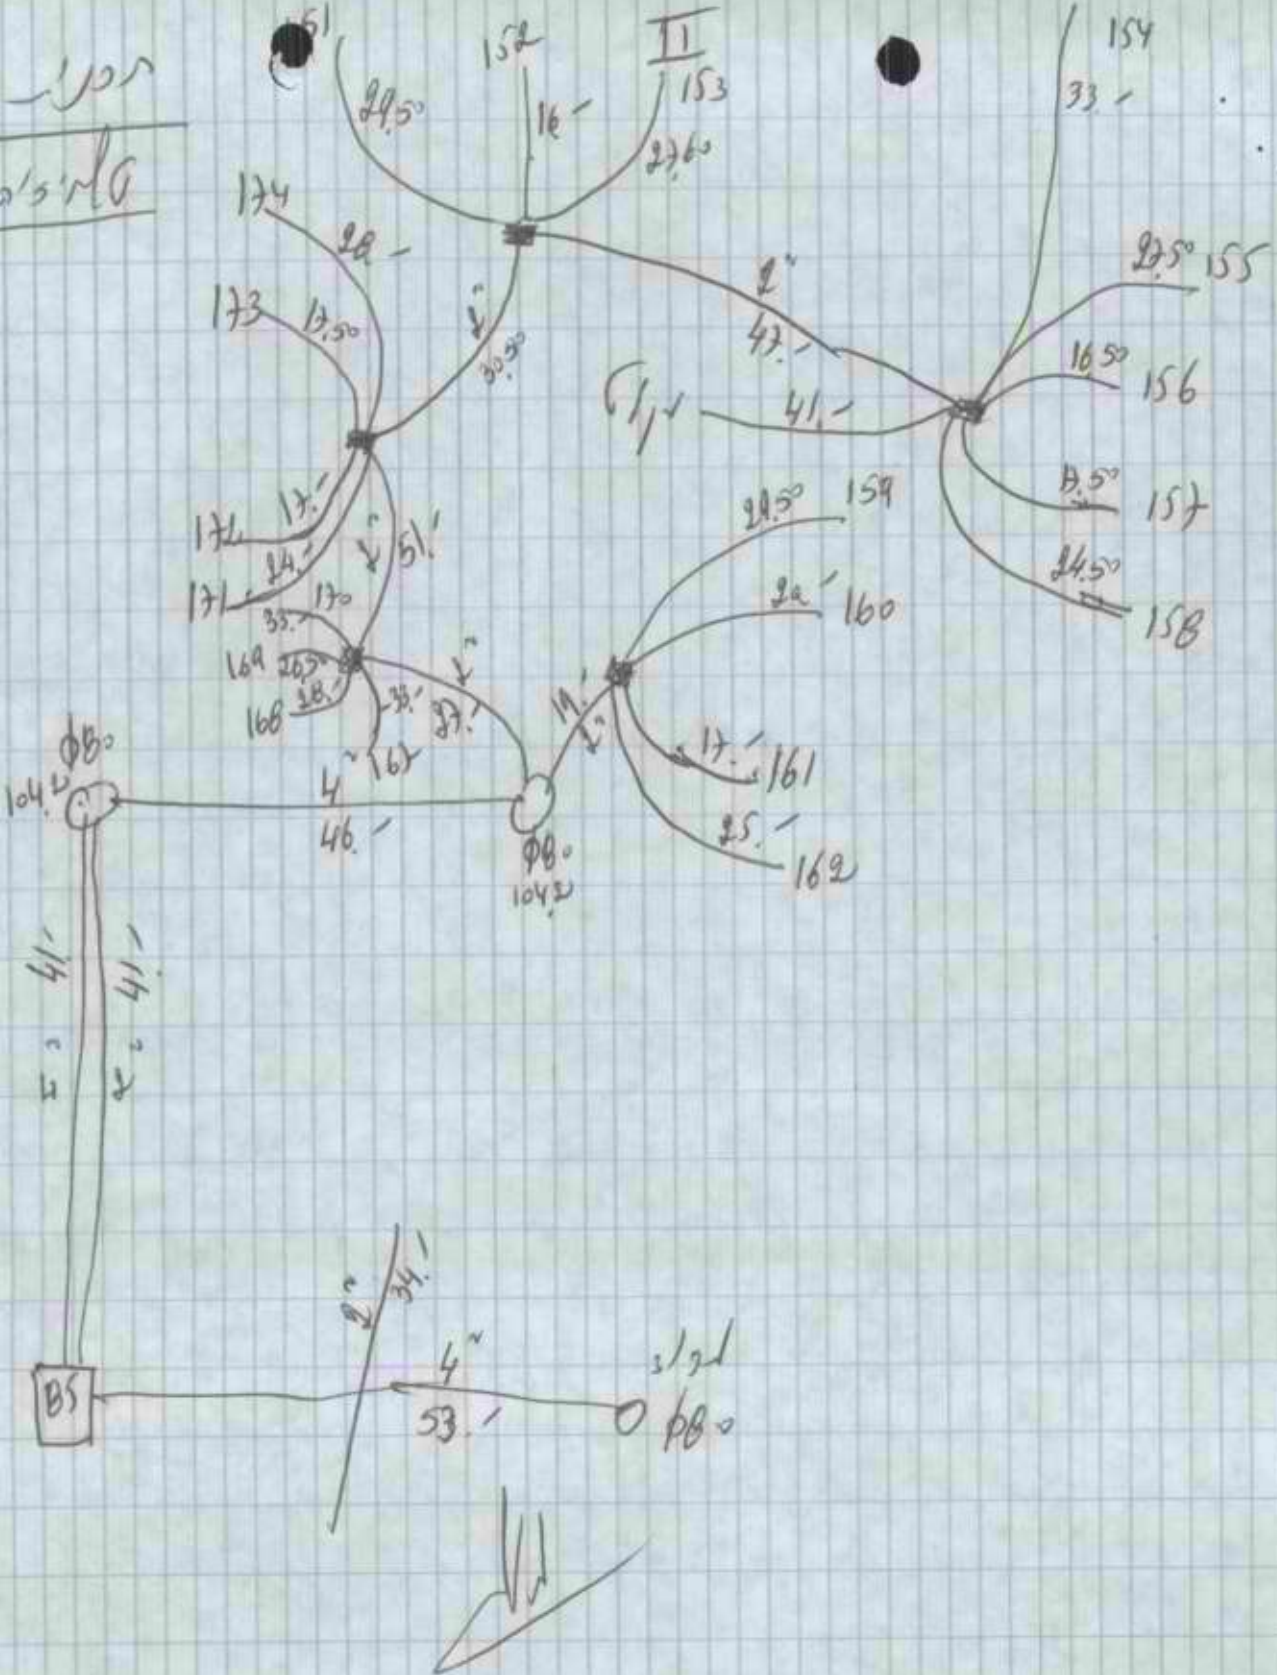 151
152
II
153
154
29.50
16.-
27.60
33.-
174
28.-
173
17.50
2"
30.50
2"
47.-
27.50 155
16.50 156
41.-
17.50 157
24.50 158
17.-
172
24.-
171
51.-
2"
29.50 159
29.- 160
170
33.-
169 26.50
168 28.-
33.-
167
2"
37.-
19.-
2"
17.- 161
25.- 162
φ80
104.2
4"
46.-
φ80
104.2
41.-
41.-
2"
2"
34.-
4"
53.-
φ80
BS